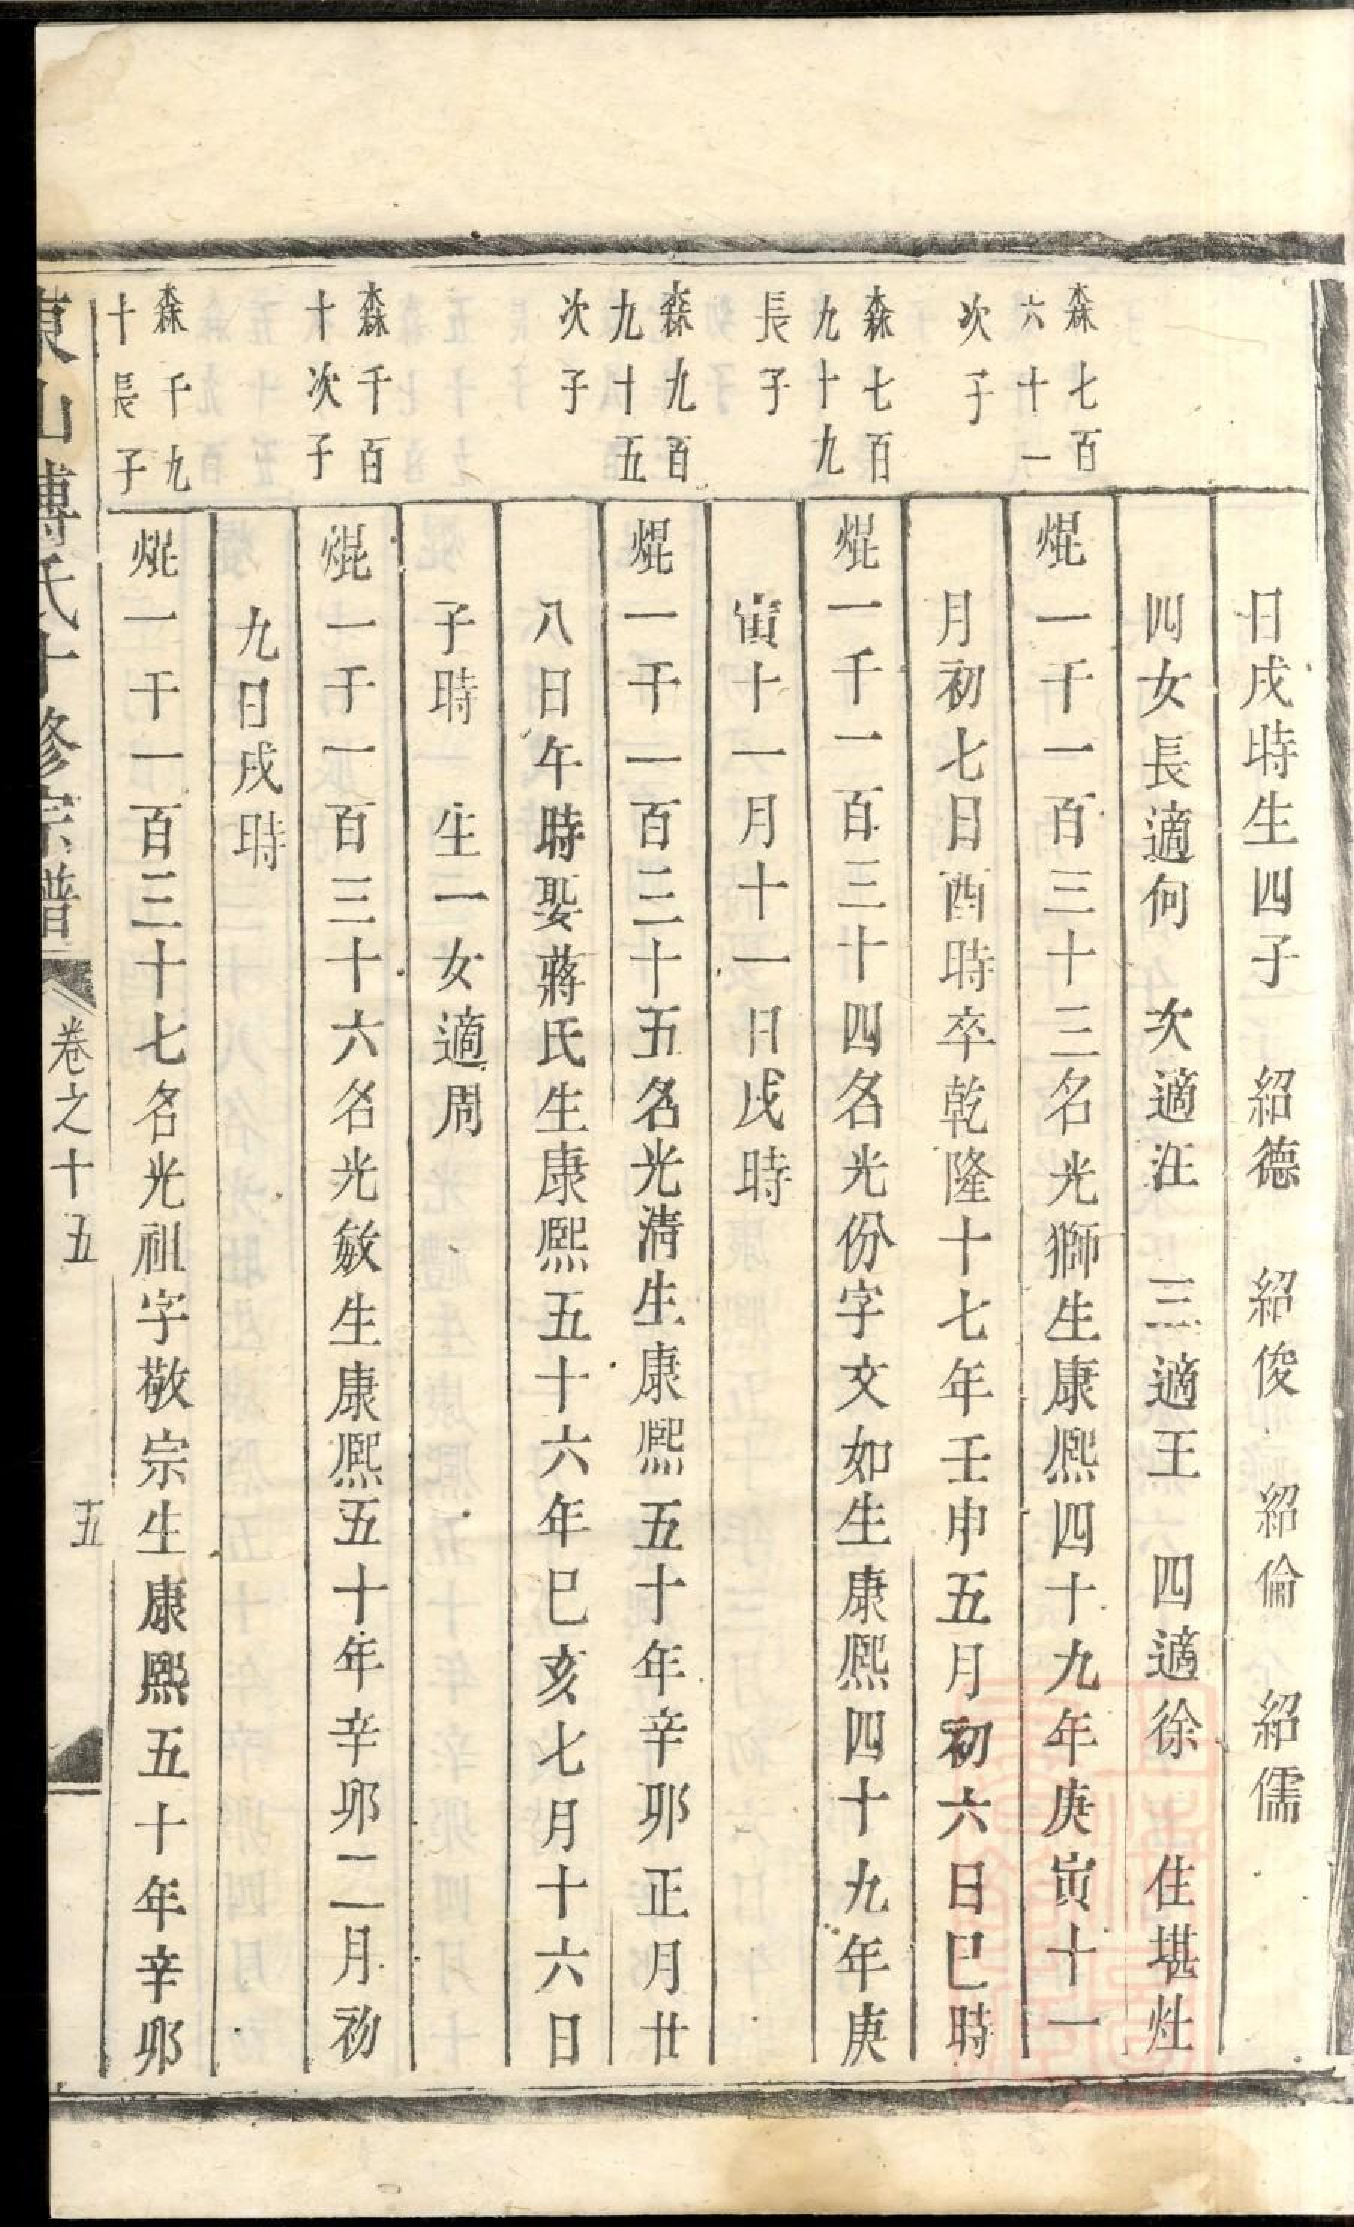 日戌時生四子　紹德　紹俊　紹倫　紹儒
四女長適何　次適汪　三適王　四適徐　住堪灶
森七百
六十一
次子
焜一千一百三十三名光獅生康熙四十九年庚寅十一
月初七日酉時卒乾隆十七年壬申五月初六日巳時
森七百
九十九
長子
焜一千一百三十四名光份字文如生康熙四十九年庚
寅十一月十一日戌時
森九百
九十五
次子
焜一千一百三十五名光淸生康熙五十年辛卯正月廿
八日午時娶蔣氏生康熙五十六年巳亥七月十六日
子時　生一女適周
森千百
十次子
焜一千一百三十六名光敏生康熙五十年辛卯二月初
九日戌時
森千九
十長子
焜一千一百三十七名光祖字敬宗生康熙五十年辛卯
東山傅氏十修宗譜　卷之十五　五